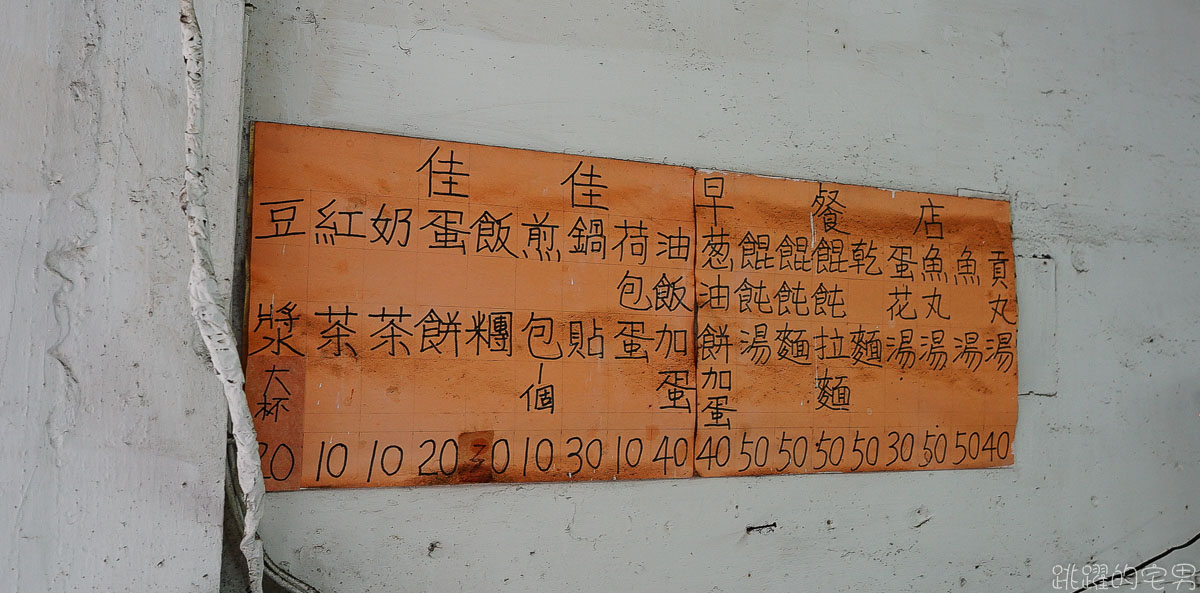 佳佳早餐店
豆漿大杯 20
紅茶 10
奶茶 10
蛋餅 20
飯糰 30
煎包一個 10
鍋貼 30
荷包蛋 10
油飯加蛋 40
葱油餅加蛋 40
餛飩湯 50
餛飩麵 50
餛飩拉麵 50
乾麵 50
蛋花湯 30
魚丸湯 50
魚湯 50
貢丸湯 40
跳躍的宅男